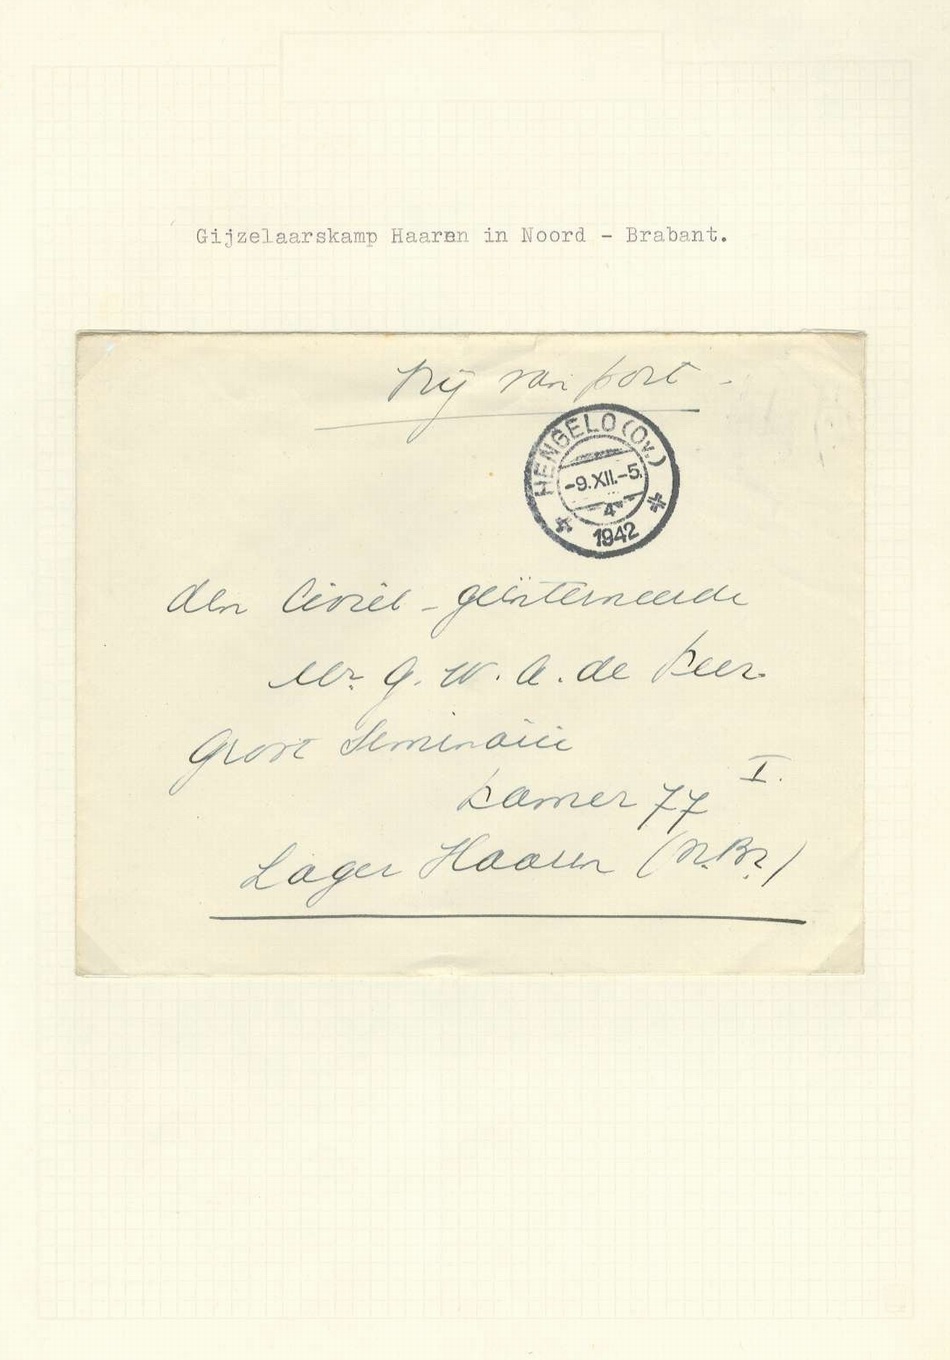 Gijzelaarskamp Haaren in Noord - Brabant.
Vrij van port -
HENGELO (Ov.)
-9.XII.-5.
4
1942
den Civiel - geïnterneerde
Mr. G. W. A. de Veer
Groot Seminarie
Kamer 77 I.
Lager Haaren (N.Br.)